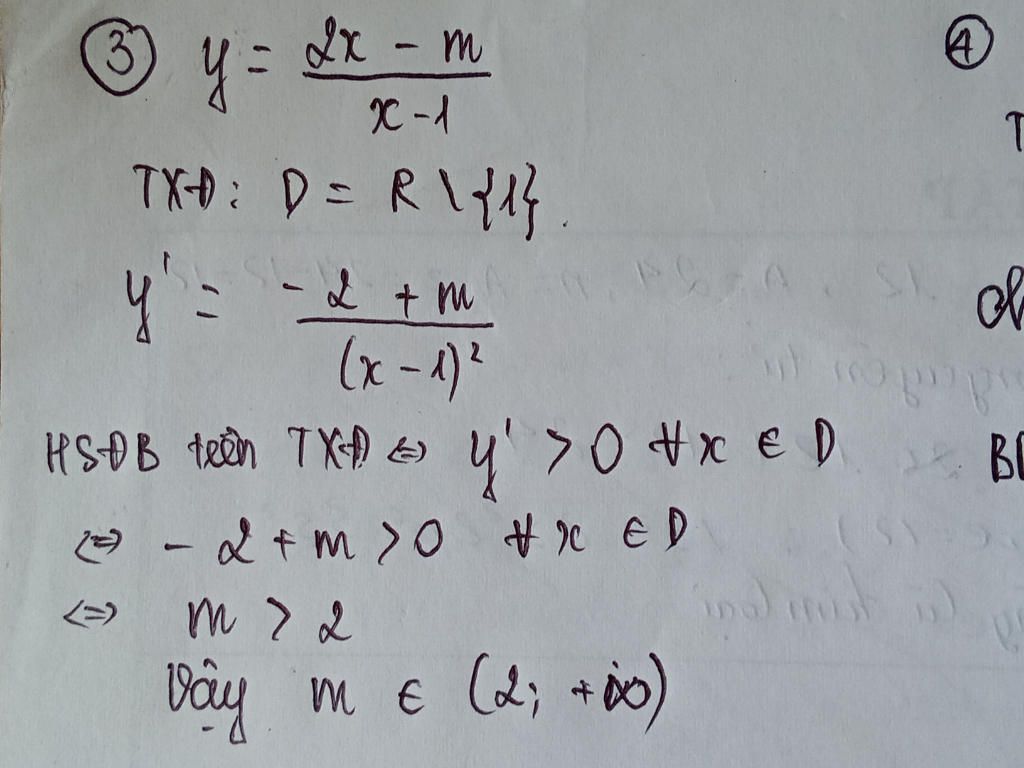 ③ y = (2x - m)/(x - 1)
④
TXĐ: D = R \ {1}.
T
y' = (-2 + m)/(x - 1)²
HSĐB trên TXĐ ⇔ y' > 0 ∀x ∈ D
⇔ -2 + m > 0 ∀x ∈ D
⇔ m > 2
Vậy m ∈ (2; +∞)